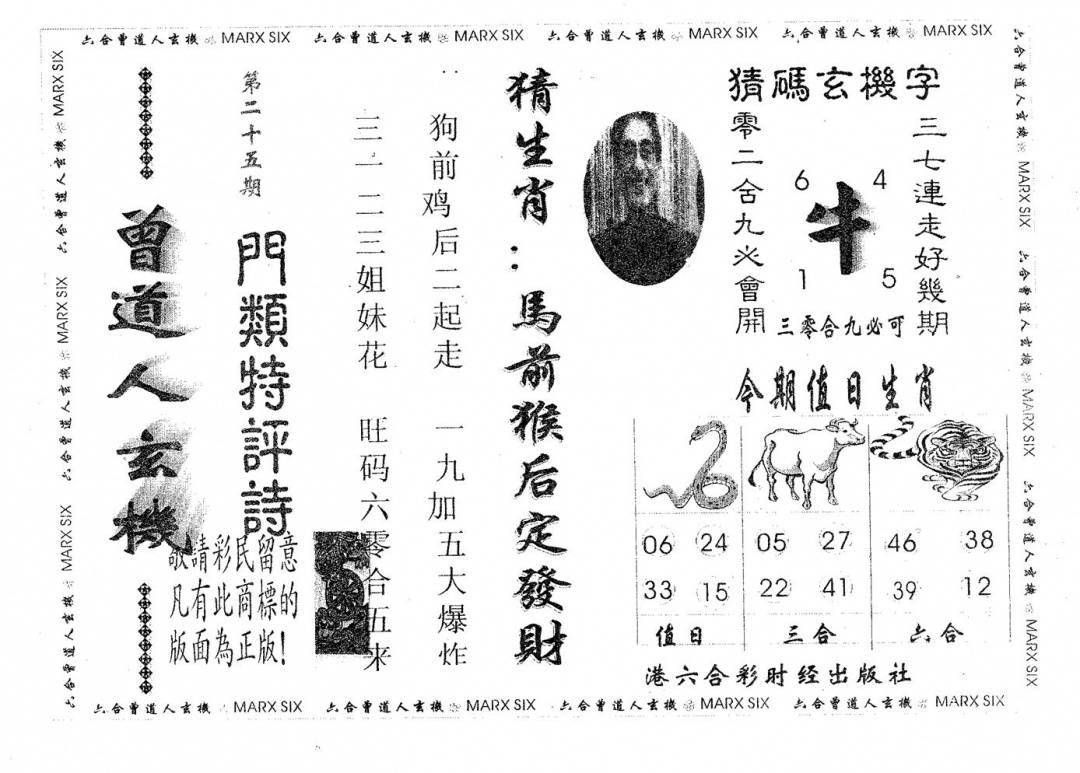 六合曾道人玄機 MARX SIX 六合曾道人玄機 MARX SIX 六合曾道人玄機 MARX SIX 六合曾道人玄機 MARX SIX
六合曾道人玄機 MARX SIX 六合曾道人玄機 MARX SIX 六合曾道人玄機 MARX SIX
猜碼玄機字
三七連走好幾期
6 4
牛
1 5
零二舍九必會開
三零合九必可
今期值日生肖
06 24 05 27 46 38
33 15 22 41 39 12
值日 三合 六合
港六合彩时经出版社
猜生肖：馬前猴后定發財
狗前鸡后二起走 一九加五大爆炸
三一二三姐妹花 旺码六零合五来
第二十五期
門類特評詩
曾道人玄機
敬請彩民留意
凡有此商標的
版面為正版!
六合曾道人玄機 MARX SIX 六合曾道人玄機 MARX SIX 六合曾道人玄機 MARX SIX
六合曾道人玄機 MARX SIX 六合曾道人玄機 MARX SIX 六合曾道人玄機 MARX SIX 六合曾道人玄機 MARX SIX